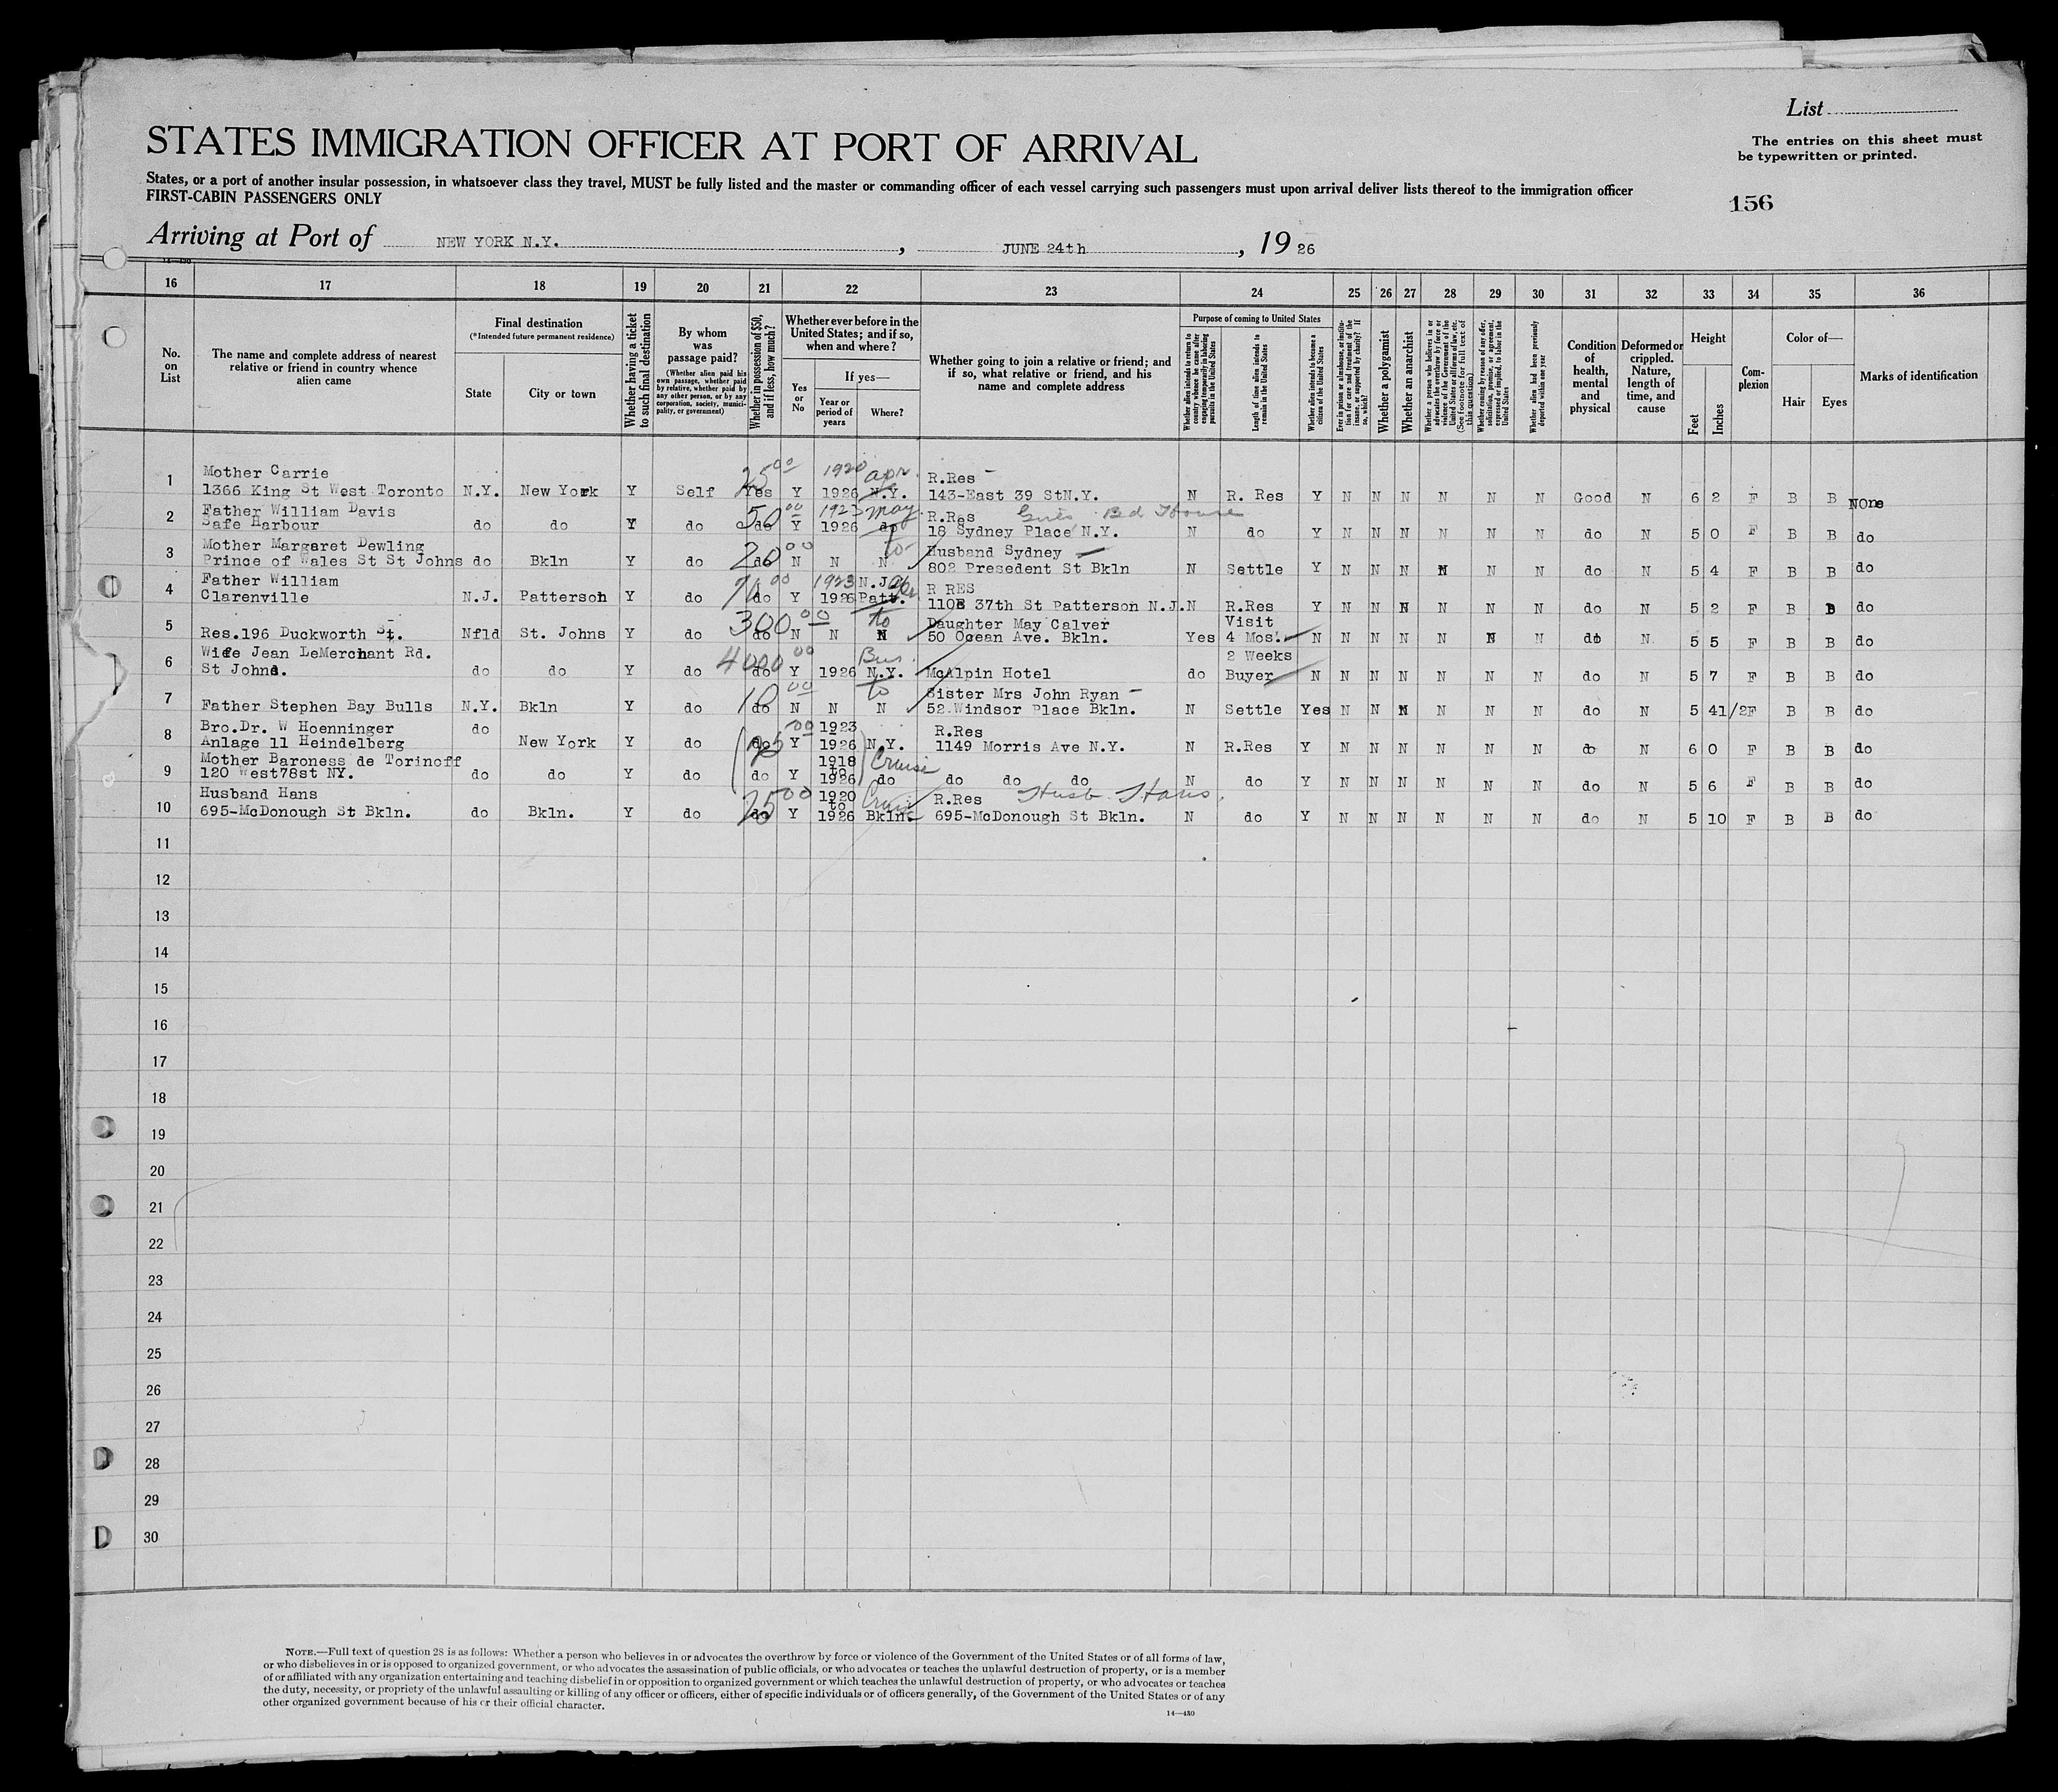 List
The entries on this sheet must
be typewritten or printed.
STATES IMMIGRATION OFFICER AT PORT OF ARRIVAL
States, or a port of another insular possession, in whatsoever class they travel, MUST be fully listed and the master or commanding officer of each vessel carrying such passengers must upon arrival deliver lists thereof to the immigration officer
FIRST-CABIN PASSENGERS ONLY
156
Arriving at Port of NEW YORK N.Y., JUNE 24th, 19 26
16 17 18 19 20 21 22 23 24 25 26 27 28 29 30 31 32 33 34 35 36
No. on List
The name and complete address of nearest relative or friend in country whence alien came
Final destination
(*Intended future permanent residence)
State
City or town
Whether having a ticket to such final destination
By whom was passage paid?
(Whether alien paid his own passage, whether paid by relative, whether paid by any other person, or by any corporation, society, municipality, or government)
Whether in possession of $50, and if less, how much?
Whether ever before in the United States; and if so, when and where?
Yes or No
If yes—
Year or period of years
Where?
Whether going to join a relative or friend; and if so, what relative or friend, and his name and complete address
Purpose of coming to United States
Whether alien intends to return to country whence he came after engaging temporarily in laboring pursuits in the United States
Length of time alien intends to remain in the United States
Whether alien intends to become a citizen of the United States
Ever in prison or almshouse, or institution for care and treatment of the insane, or supported by charity? If so, which?
Whether a polygamist
Whether an anarchist
Whether a person who believes in or advocates the overthrow by force or violence of the Government of the United States or all forms of law, etc. (See footnote for full text of this question)
Whether coming by reason of any offer, solicitation, promise, or agreement, expressed or implied, to labor in the United States
Whether alien had been previously deported within one year
Condition of health, mental and physical
Deformed or crippled. Nature, length of time, and cause
Height
Feet
Inches
Complexion
Color of—
Hair
Eyes
Marks of identification
1 Mother Carrie 25 00 1920 apr. R.Res
1366 King St West Toronto N.Y. New York Y Self Yes Y 1926 N.Y. 143-East 39 StN.Y. N R. Res Y N N N N N N Good N 6 2 F B B NOne
2 Father William Davis 50 00 1923 may R.Res
Safe Harbour do do Y do do Y 1926 do 18 Sydney Place N.Y. N do Y N N N N N N do N 5 0 F B B do
3 Mother Margaret Dewling 20 00 to Husband Sydney
Prince of Wales St St Johns do Bkln Y do do N N N 802 Presedent St Bkln N Settle Y N N N N N N do N 5 4 F B B do
4 Father William 00 1923 N.J. R RES
Clarenville N.J. Patterson Y do do Y 1926 Patt. 110E 37th St Patterson N.J. N R.Res Y N N N N N N do N 5 2 F B B do
5 300 00 to Daughter May Calver Visit
Res.196 Duckworth St. Nfld St. Johns Y do do N N N 50 Ocean Ave. Bkln. Yes 4 Mos. N N N N N N N do N 5 5 F B B do
6 Wife Jean LeMerchant Rd. 4000 00 Bus. 2 Weeks
St Johns. do do Y do do Y 1926 N.Y. McAlpin Hotel do Buyer N N N N N N N do N 5 7 F B B do
7 10 00 to Sister Mrs John Ryan
Father Stephen Bay Bulls N.Y. Bkln Y do do N N N 52 Windsor Place Bkln. N Settle Yes N N N N N N do N 5 41/2 F B B do
8 Bro.Dr. W Hoenninger do 00 1923 R.Res
Anlage 11 Heindelberg New York Y do do Y 1926 N.Y. 1149 Morris Ave N.Y. N R.Res Y N N N N N N do N 6 0 F B B do
9 Mother Baroness de Torinoff 1918 to Cruise
120 West78st NY. do do Y do do Y 1926 do do do do N do Y N N N N N N do N 5 6 F B B do
10 Husband Hans 25 00 1920 to R.Res Husb. Hans.
695-McDonough St Bkln. do Bkln. Y do do Y 1926 Bkln. 695-McDonough St Bkln. N do Y N N N N N N do N 5 10 F B B do
11
12
13
14
15
16
17
18
19
20
21
22
23
24
25
26
27
28
29
30
NOTE.—Full text of question 28 is as follows: Whether a person who believes in or advocates the overthrow by force or violence of the Government of the United States or of all forms of law,
or who disbelieves in or is opposed to organized government, or who advocates the assassination of public officials, or who advocates or teaches the unlawful destruction of property, or is a member
of or affiliated with any organization entertaining and teaching disbelief in or opposition to organized government or which teaches the unlawful destruction of property, or who advocates or teaches
the duty, necessity, or propriety of the unlawful assaulting or killing of any officer or officers, either of specific individuals or of officers generally, of the Government of the United States or of any
other organized government because of his or their official character.
14—430